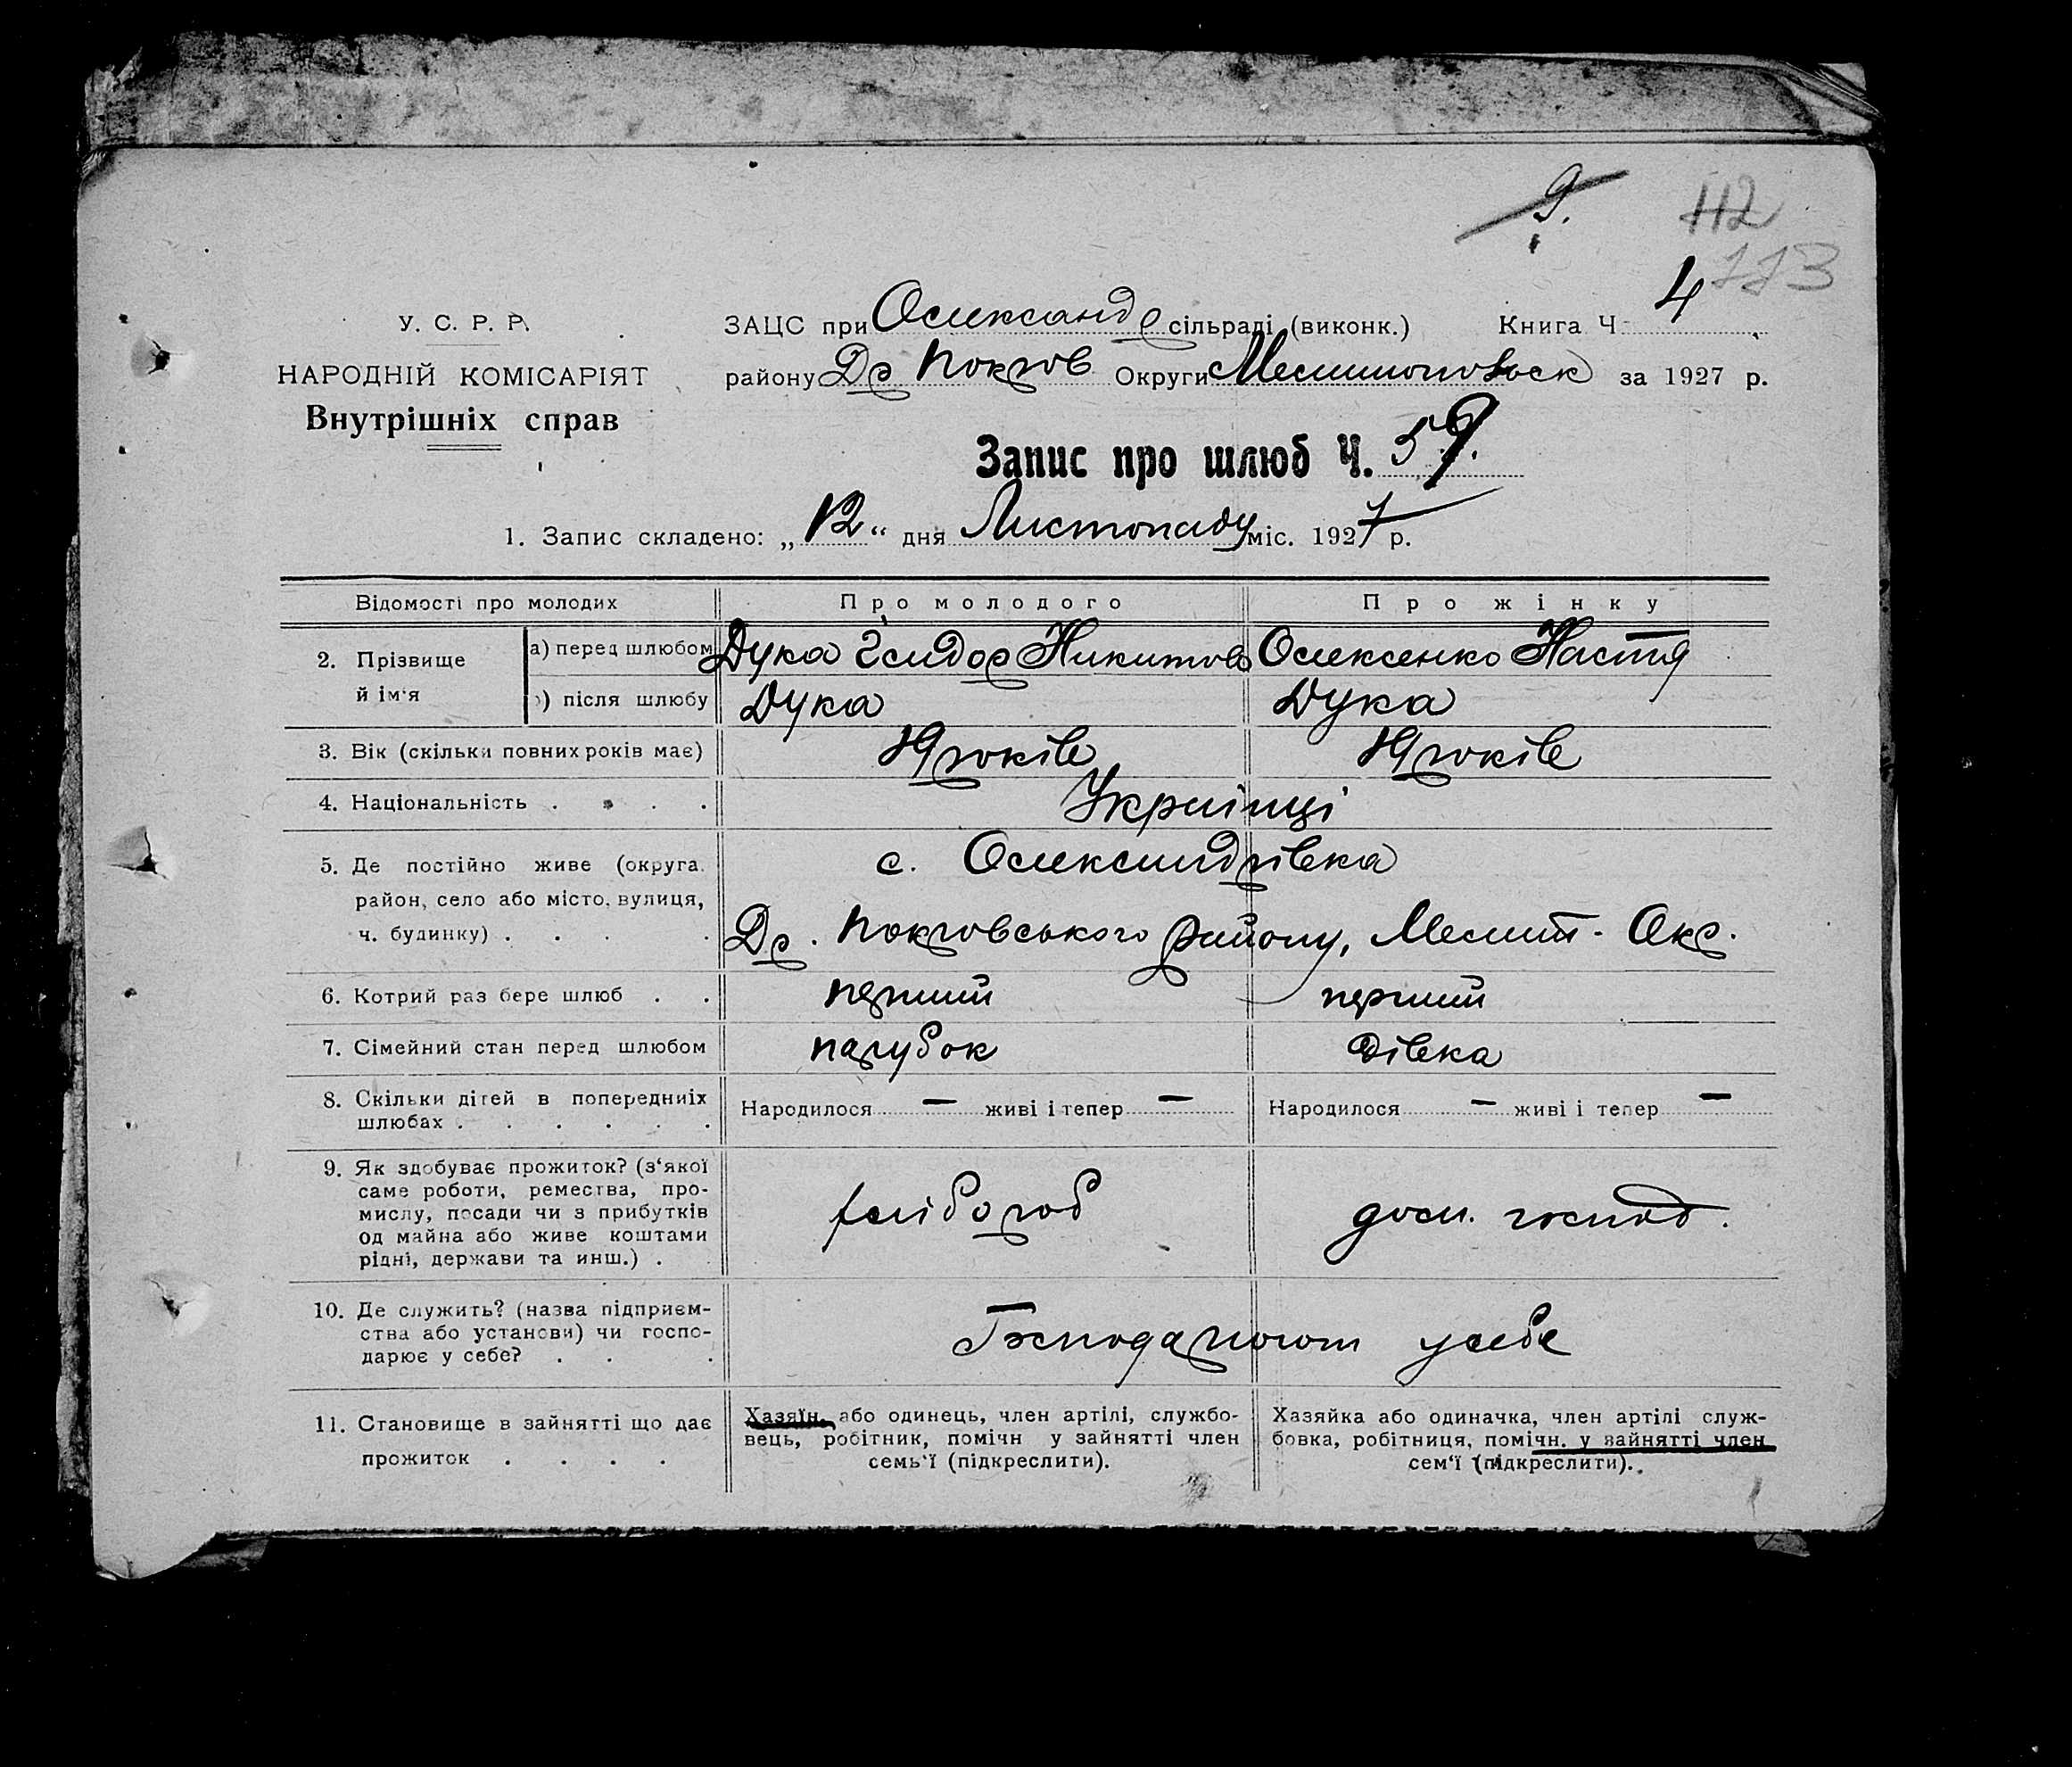 9.
112
113
У. С. Р. Р.
НАРОДНІЙ КОМІСАРІЯТ
Внутрішніх справ
ЗАЦС при Олександр сільраді (виконк.) Книга Ч. 4
району Др Покров Округи Мелитопольск за 1927 р.
Запис про шлюб Ч. 59.
1. Запис складено: „12“ дня Листопаду міс. 1927 р.
Відомості про молодих Про молодого Про жінку
2. Прізвище й ім‘я а) перед шлюбом Дука Ісидор Никитов Олексенко Настя
) після шлюбу Дука Дука
3. Вік (скільки повних років має) 19 років 19 років
4. Національність . . . . Українці
5. Де постійно живе (округа, с. Олександрівка
район, село або місто, вулиця,
ч. будинку) . . . . Др. Покровського району, Мелит. Окр.
6. Котрий раз бере шлюб . . перший перший
7. Сімейний стан перед шлюбом парубок дівка
8. Скільки дітей в попередниіх Народилося — живі і тепер — Народилося — живі і тепер —
шлюбах . . . . . .
9. Як здобуває прожиток? (з‘якої
саме роботи, ремества, про-
мислу, посади чи з прибутків хлібороб дом. господ.
од майна або живе коштами
рідні, держави та инш.) .
10. Де служить? (назва підприєм-
ства або установи) чи госпо- Господарюют у себе
дарює у себе? . . .
11. Становище в зайнятті що дає Хазяїн, або одинець, член артілі, службо- Хазяйка або одиначка, член артілі служ-
прожиток . . . . вець, робітник, помічн у зайнятті член бовка, робітниця, помічн. у зайнятті член
семь‘ї (підкреслити). сем‘ї (підкреслити).